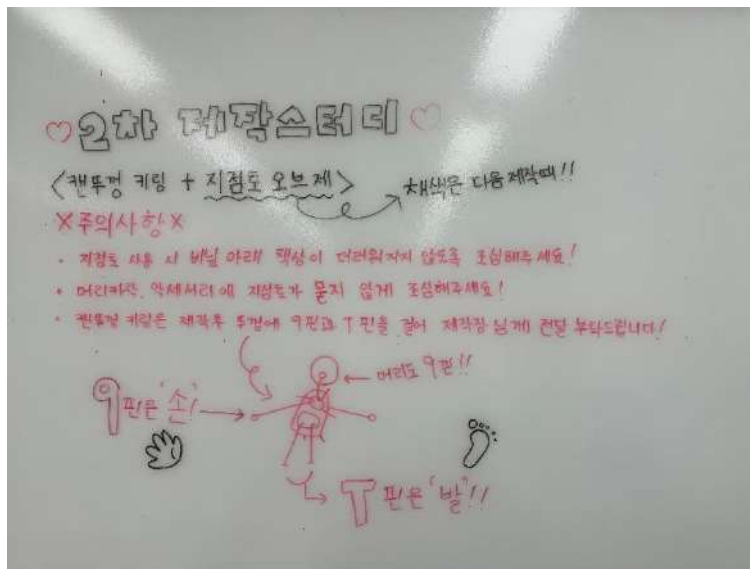 ♡2차 제작스터디♡
<캔뚜껑 키링 + 지점토 오브제>
채색은 다음 제작때!!
X주의사항X
· 지점토 사용 시 비닐 아래 책상이 더러워지지 않도록 조심해주세요!
· 머리카락, 악세서리에 지점토가 묻지 않게 조심해주세요!
· 캔뚜껑 키링은 제작후 뚜껑에 9핀과 T핀을 걸어 제작장님께 전달 부탁드립니다!
머리도 9핀!!
9핀은 '손'!
T핀은 '발'!!